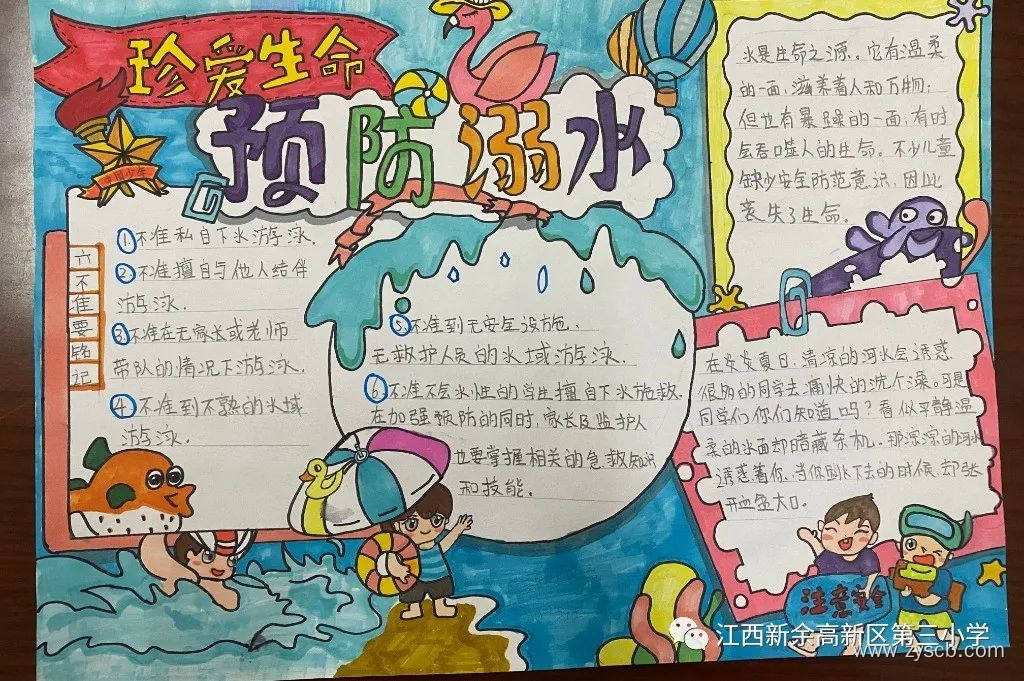 珍爱生命
预防溺水
六不准要铭记
①不准私自下水游泳.
②不准擅自与他人结伴
游泳.
③不准在无家长或老师
带队的情况下游泳.
④不准到不熟的水域
游泳.
⑤不准到无安全设施、
无救护人员的水域游泳.
⑥不准不会水性的学生擅自下水施救.
在加强预防的同时,家长及监护人
也要掌握相关的急救知识
和技能.
水是生命之源。它有温柔
的一面,滋养着人和万物;
但也有暴躁的一面,有时
会吞噬人的生命。不少儿童
缺少安全防范意识,因此
丧失了生命.
在炎炎夏日,清凉的河水会诱惑
很多的同学去痛快的洗个澡。可是
同学们你们知道吗?看似平静温
柔的水面却暗藏杀机.那深深的河水
诱惑着你,当你到下去的时候,却张
开血盆大口。
注意安全
江西新余高新区第三小学
www.zyscb.com